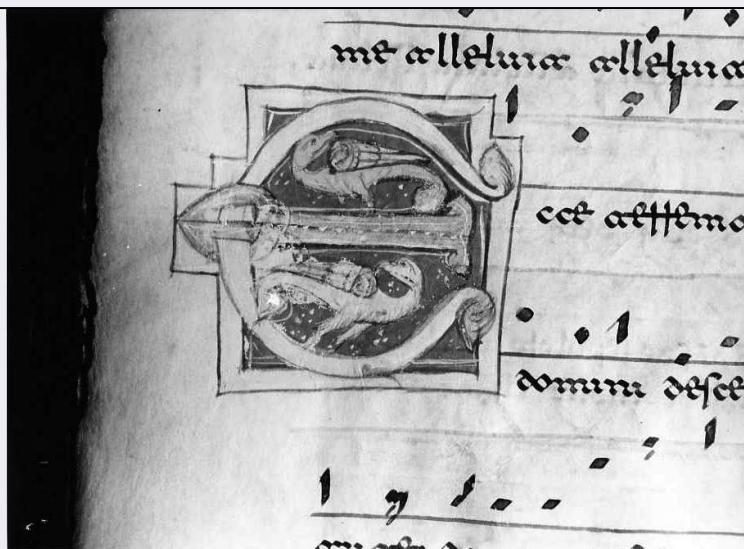 me alleluia alleluia
E cce terremo
domini desce